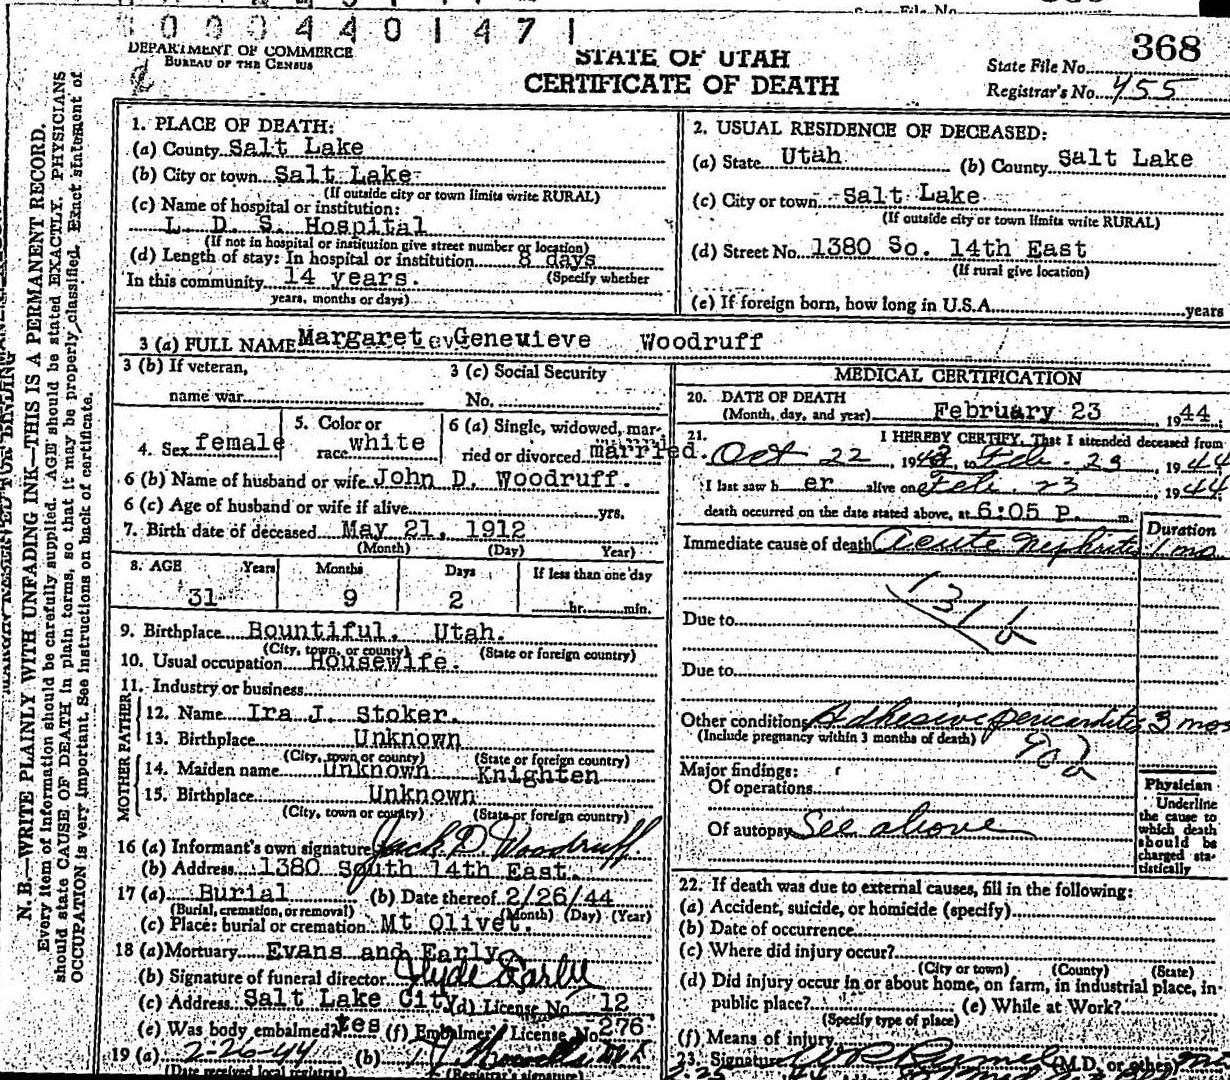 State File No.
0004401471
DEPARTMENT OF COMMERCE
BUREAU OF THE CENSUS
STATE OF UTAH
CERTIFICATE OF DEATH
368
State File No.
Registrar's No. 455
N. B.—WRITE PLAINLY WITH UNFADING INK—THIS IS A PERMANENT RECORD.
Every item of information should be carefully supplied. AGE should be stated EXACTLY. PHYSICIANS
should state CAUSE OF DEATH in plain terms, so that it may be properly classified. Exact statement of
OCCUPATION is very important. See instructions on back of certificate.
1. PLACE OF DEATH:
(a) County Salt Lake
(b) City or town Salt Lake
(If outside city or town limits write RURAL)
(c) Name of hospital or institution:
L. D. S. Hospital
(If not in hospital or institution give street number or location)
(d) Length of stay: In hospital or institution 8 days
(Specify whether
In this community 14 years.
years, months or days)
2. USUAL RESIDENCE OF DECEASED:
(a) State Utah (b) County Salt Lake
(c) City or town Salt Lake
(If outside city or town limits write RURAL)
(d) Street No. 1380 So. 14th East
(If rural give location)
(e) If foreign born, how long in U.S.A. years
3 (a) FULL NAME Margaret Genevieve Woodruff
3 (b) If veteran,
name war
3 (c) Social Security
No.
4. Sex female
5. Color or
race white
6 (a) Single, widowed, mar-
ried or divorced married.
6 (b) Name of husband or wife John D. Woodruff.
6 (c) Age of husband or wife if alive yrs.
7. Birth date of deceased May 21, 1912
(Month) (Day) Year)
8. AGE Years Months Days If less than one day
31 9 2 hr. min.
9. Birthplace Bountiful, Utah.
(City, town, or county) (State or foreign country)
10. Usual occupation Housewife.
11. Industry or business
FATHER
12. Name Ira J. Stoker.
13. Birthplace Unknown
(City, town or county) (State or foreign country)
MOTHER
14. Maiden name Unknown Knighten
15. Birthplace Unknown
(City, town or county) (State or foreign country)
16 (a) Informant's own signature Jack D Woodruff
(b) Address 1380 South 14th East.
17 (a) Burial (b) Date thereof 2/26/44
(Burial, cremation, or removal) (Month) (Day) (Year)
(c) Place: burial or cremation Mt Olivet.
18 (a) Mortuary Evans and Early
(b) Signature of funeral director Clyde Earlie
(c) Address Salt Lake City (d) License No. 12
(e) Was body embalmed? Yes (f) Embalmer License No. 276
19 (a) 2-26-44 (b)
(Date received local registrar) (Registrar's signature)
MEDICAL CERTIFICATION
20. DATE OF DEATH
(Month, day, and year) February 23 1944
21. I HEREBY CERTIFY, That I attended deceased from
Oct 22, 1943, to Feb. 23, 1944
I last saw her alive on Feb. 23 1944
death occurred on the date stated above, at 6:05 P. m.
Duration
Immediate cause of death Acute Nephritis 1 mo
131b
Due to
Due to
Other conditions Adhesive pericarditis 3 mos
(Include pregnancy within 3 months of death)
Major findings:
Of operations
Of autopsy See above
Physician
Underline
the cause to
which death
should be
charged sta-
tistically
22. If death was due to external causes, fill in the following:
(a) Accident, suicide, or homicide (specify)
(b) Date of occurrence
(c) Where did injury occur?
(City or town) (County) (State)
(d) Did injury occur in or about home, on farm, in industrial place, in-
public place? (e) While at Work?
(Specify type of place)
(f) Means of injury
23. Signature (M.D. or other)